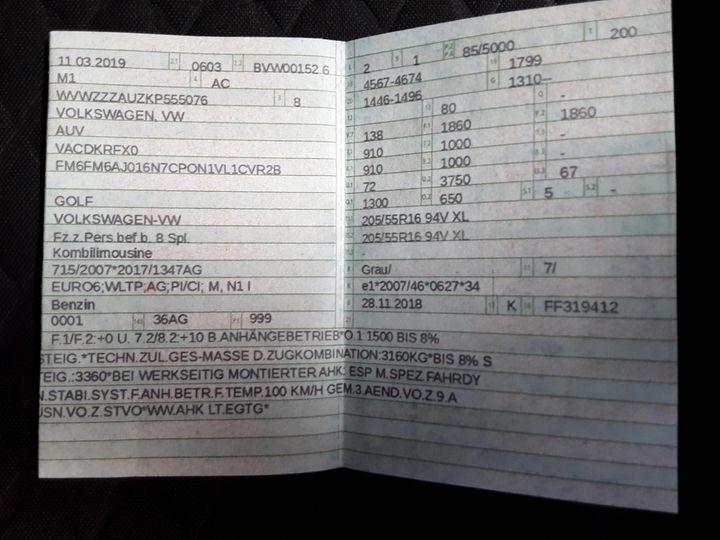 11.03.2019 2.1 0603 2.2 BVW00152 6
M1 4 AC
WVWZZZAUZKP555076 3 8
VOLKSWAGEN, VW
AUV
VACDKRFX0
FM6FM6AJ016N7CPON1VL1CVR2B
GOLF
VOLKSWAGEN-VW
Fz.z.Pers.bef.b. 8 Spl.
Kombilimousine
715/2007*2017/1347AG
EURO6;WLTP;AG;PI/CI; M, N1 I
Benzin
0001 36AG 999
2 9 1 P.2 P.4 85/5000 T 200
4567-4674 1799
1446-1496 G 1310--
80 Q -
138 1860 1860
910 1000 -
910 1000 -
72 3750 U.3 67
1300 O.2 650 S.1 5 S.2 -
205/55R16 94V XL
205/55R16 94V XL
-
Grau/ 11 7/
K e1*2007/46*0627*34
28.11.2018 17 K 16 FF319412
F.1/F.2:+0 U. 7.2/8.2:+10 B.ANHÄNGEBETRIEB*O.1:1500 BIS 8%
STEIG.*TECHN.ZUL.GES-MASSE D.ZUGKOMBINATION:3160KG*BIS 8% S
TEIG.:3360*BEI WERKSEITIG MONTIERTER AHK: ESP M.SPEZ.FAHRDY
N.STABI.SYST.F.ANH.BETR.F.TEMP.100 KM/H GEM.3.AEND.VO.Z.9.A
USN.VO.Z.STVO*WW.AHK LT.EGTG*